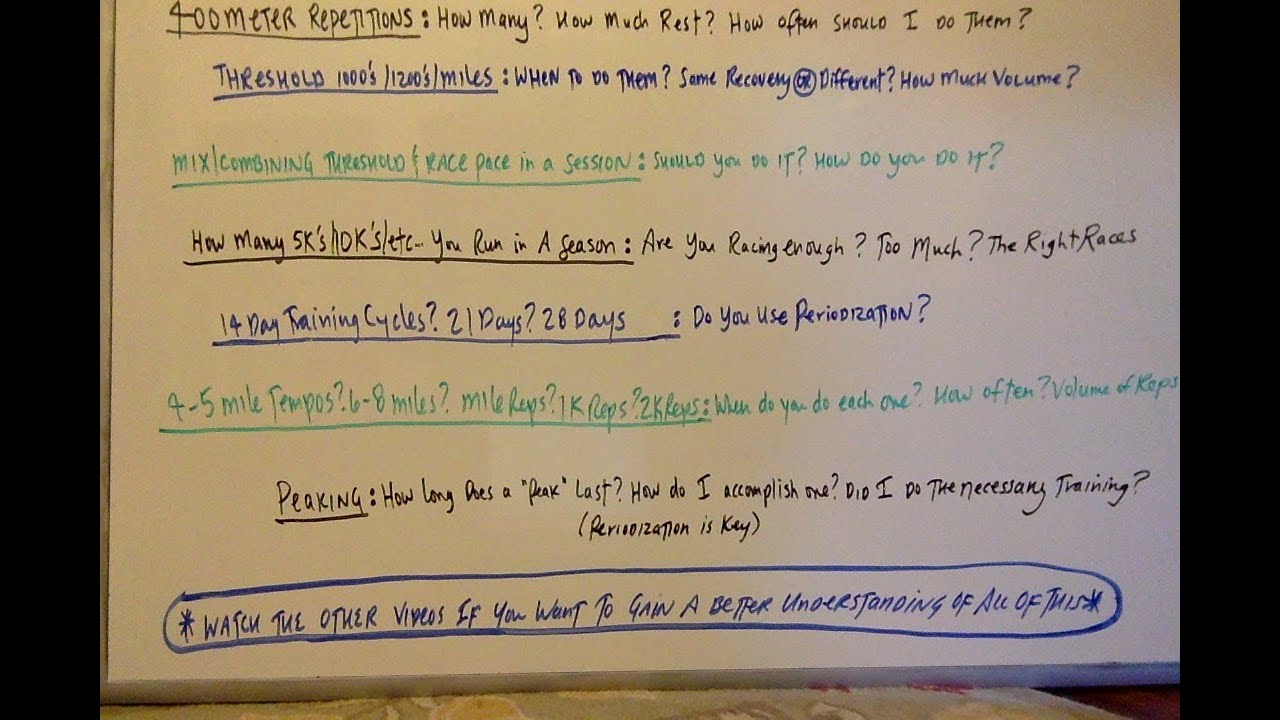 400METER REPETITIONS: How Many? How Much Rest? How often should I do Them?
THRESHOLD 1000's/1200's/miles: WHEN TO DO THEM? Same Recovery OR Different? How Much Volume?
MIX/COMBINING THRESHOLD & RACE Pace in a Session: SHOULD you DO IT? HOW DO you DO IT?
How Many 5K's/10K's/etc.. You Run in A Season: Are You Racing enough? Too Much? The Right Races
14 Day Training Cycles? 21 Days? 28 Days : Do You Use Periodization?
4-5 mile Tempos? 6-8 miles? Mile Reps? 1K Reps? 2K Reps: When do you do each one? How often? Volume of Reps
PEAKING: How Long Does a "Peak" Last? How do I accomplish one? DID I DO The necessary Training?
(Periodization is Key)
*WATCH THE OTHER VIDEOS IF You Want To GAIN A Better Understanding OF All OF THIS*